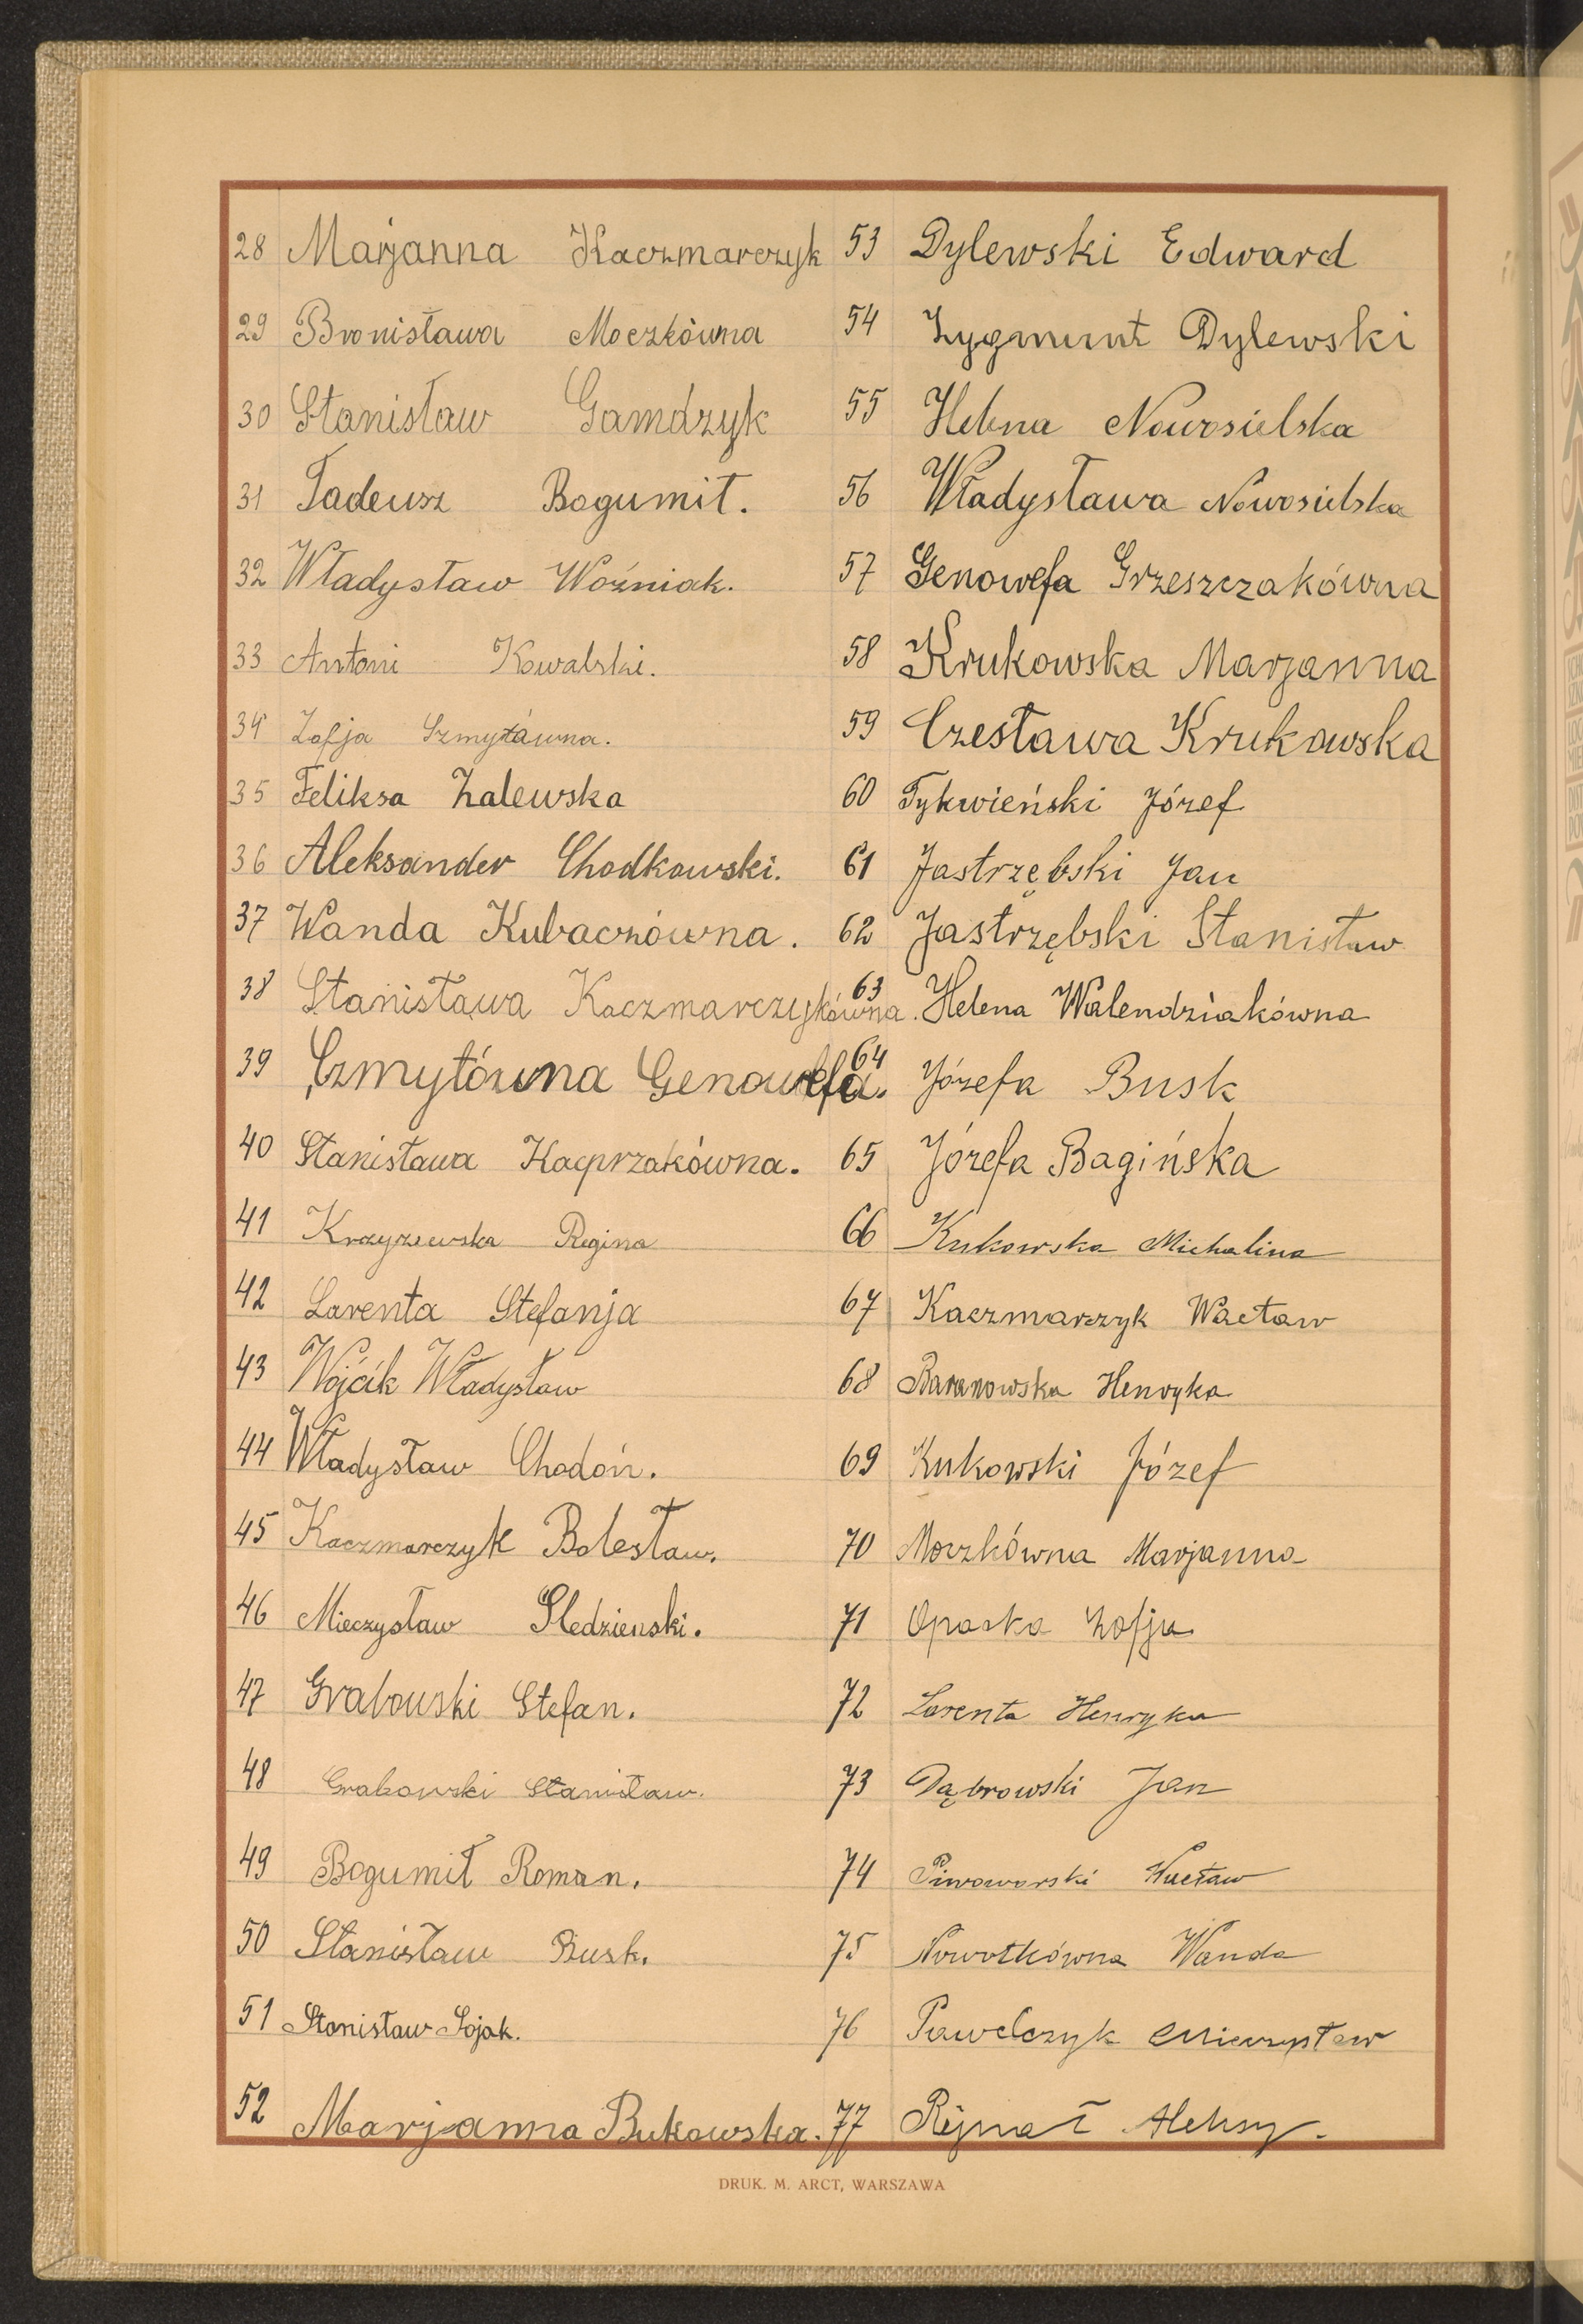 28 Marjanna Kaczmarczyk
29 Bronisława Moczkówna
30 Stanisław Gamdzyk
31 Tadeusz Bogumił.
32 Władysław Woźniak.
33 Antoni Kowalski.
34 Zofja Szmytówna.
35 Feliksa Zalewska
36 Aleksander Chodkowski.
37 Wanda Kubaczówna.
38 Stanisława Kaczmarczykówna.
39 Szmytówna Genowefa.
40 Stanisława Kacprzakówna.
41 Krzyżewska Regina
42 Larenta Stefanja
43 Wójcik Władysław
44 Władysław Chodoń.
45 Kaczmarczyk Bolesław.
46 Mieczysław Śledzienski.
47 Grabowski Stefan.
48 Grabowski Stanisław.
49 Bogumił Roman.
50 Stanisław Busk.
51 Stanisław Sojak.
52 Marjanna Bukowska.
53 Dylewski Edward
54 Zygmunt Dylewski
55 Helena Nowosielska
56 Władysława Nowosielska
57 Genowefa Grzeszczakówna
58 Krukowska Marjanna
59 Czesława Krukowska
60 Tykwieński Józef
61 Jastrzębski Jan
62 Jastrzębski Stanisław
63 Helena Walendziakówna
64 Józefa Busk
65 Józefa Bagińska
66 Kukowska Michalina
67 Kaczmarczyk Wacław
68 Baranowska Henryka
69 Kukowski Józef
70 Moczkówna Marjanna
71 Opaska Zofja
72 Larenta Henryka
73 Dąbrowski Jan
74 Piwowarski Wacław
75 Nowotkówna Wanda
76 Pawelczyk Mieczysław
77 Rejnał Aleksy.
DRUK. M. ARCT, WARSZAWA